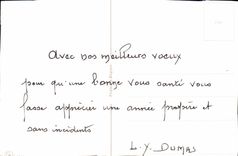 Avec nos meilleurs voeux
pour qu'une bonne vous santé vous
fasse apprécier une année prospère et
sans incidents
L.Y. DUMAS